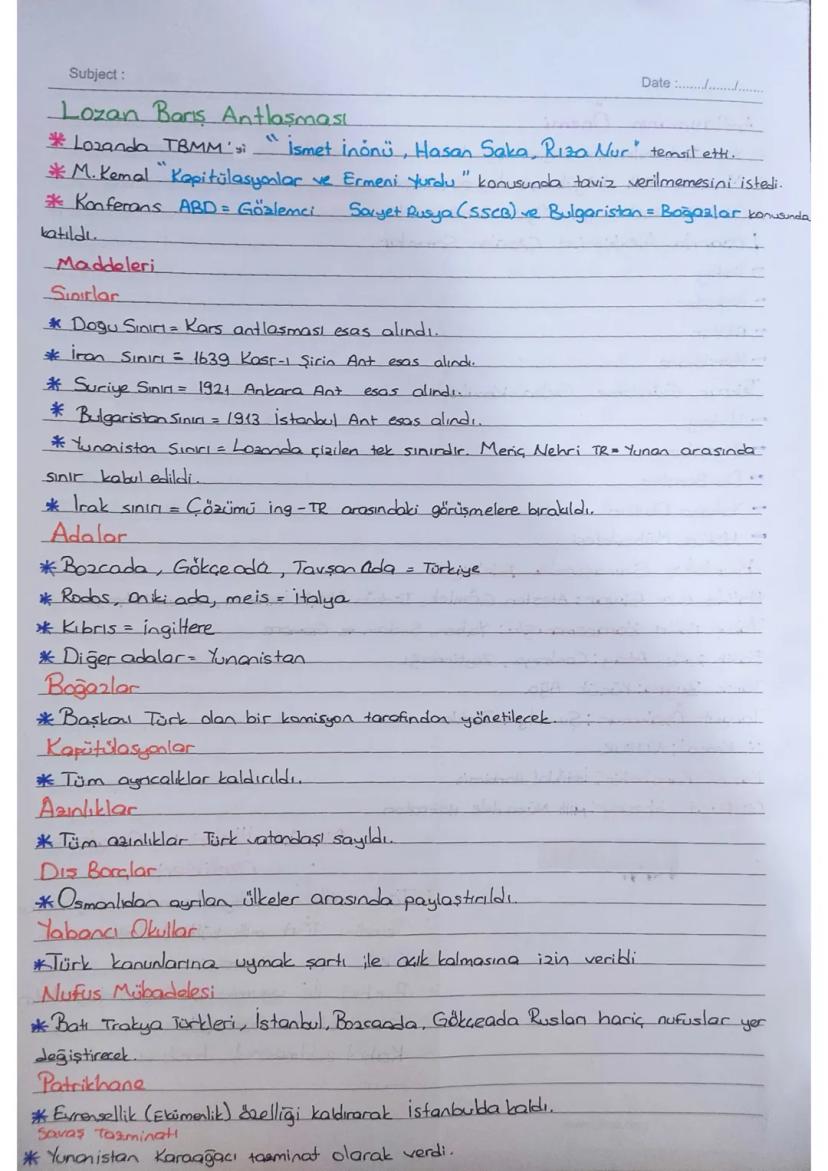 Subject :
Date :......./......./.......
Lozan Barış Antlaşması
* Lozanda TBMM'si "İsmet İnönü, Hasan Saka, Rıza Nur" temsil etti.
* M.Kemal "Kapitülasyonlar ve Ermeni Yurdu" konusunda taviz verilmemesini istedi.
* Konferans ABD = Gözlemci Sovyet Rusya (SSCB) ve Bulgaristan = Boğazlar konusunda
katıldı.
Maddeleri
Sınırlar
* Doğu Sınırı = Kars antlaşması esas alındı.
* İran Sınırı = 1639 Kasr-ı Şirin Ant esas alındı.
* Suriye Sınırı = 1921 Ankara Ant esas alındı.
* Bulgaristan Sınırı = 1913 İstanbul Ant esas alındı.
* Yunanistan Sınırı = Lozanda çizilen tek sınırdır. Meriç Nehri TR = Yunan arasında
sınır kabul edildi.
* Irak sınırı = Çözümü ing - TR arasındaki görüşmelere bırakıldı.
Adalar
* Bozcada, Gökçe ada, Tavşan Ada = Türkiye
* Rodos, on iki ada, meis = İtalya
* Kıbrıs = İngiltere
* Diğer adalar = Yunanistan
Boğazlar
* Başkanı Türk olan bir komisyon tarafından yönetilecek.
Kapütülasyonlar
* Tüm ayrıcalıklar kaldırıldı.
Azınlıklar
* Tüm azınlıklar Türk vatandaşı sayıldı.
Dış Borçlar
* Osmanlıdan ayrılan ülkeler arasında paylaştırıldı.
Yabancı Okullar
* Türk kanunlarına uymak şartı ile açık kalmasına izin verildi
Nufus Mübadelesi
* Batı Trakya Türkleri, İstanbul, Bozcaada, Gökçeada Rusları hariç nufuslar yer
değiştirecek.
Patrikhane
* Evrensellik (Ekümenlik) özelliği kaldırarak istanbulda kaldı.
Savaş Tazminatı
* Yunanistan Karaağacı tazminat olarak verdi.